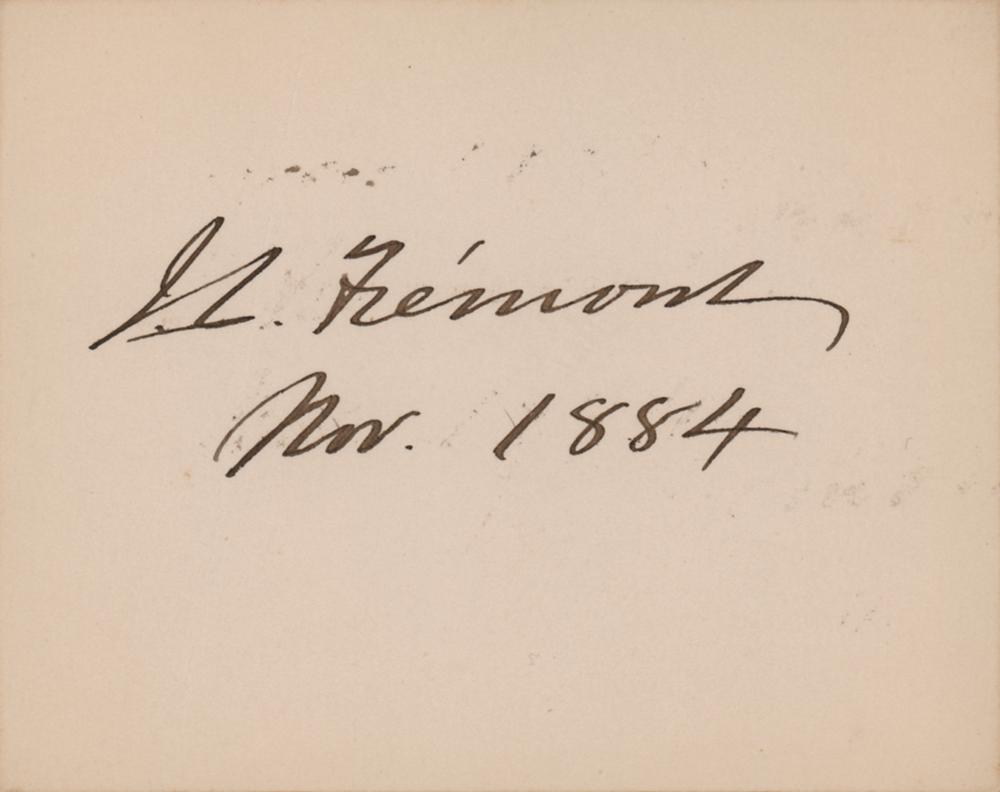 J.C. Frémont
Nov. 1884